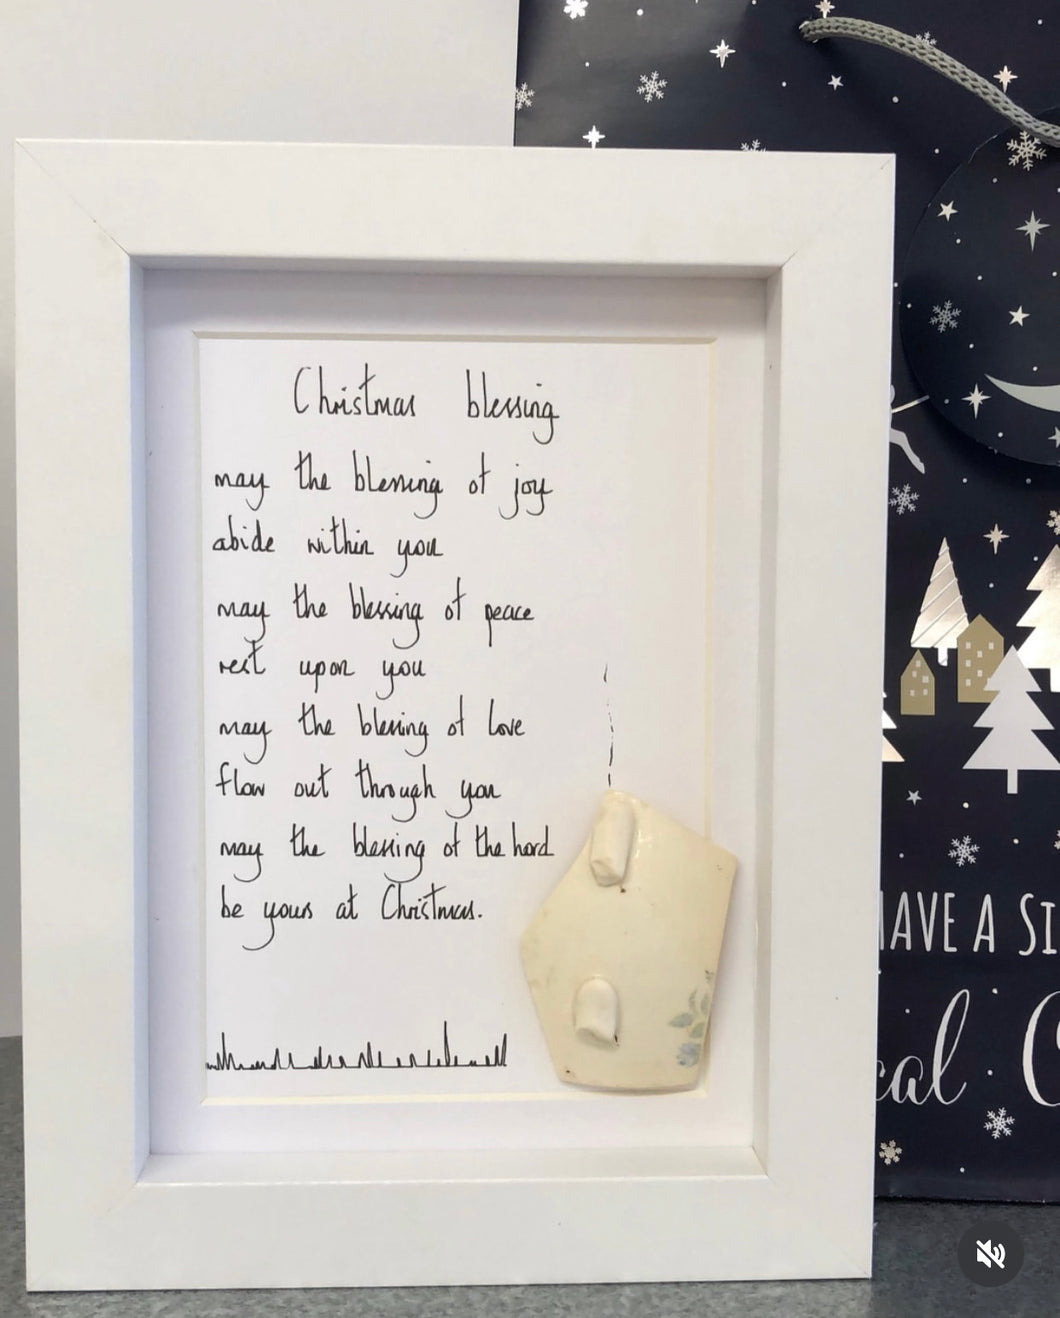 Christmas blessing
may the blessing of joy
abide within you
may the blessing of peace
rest upon you
may the blessing of love
flow out through you
may the blessing of the Lord
be yours at Christmas.
HAVE A